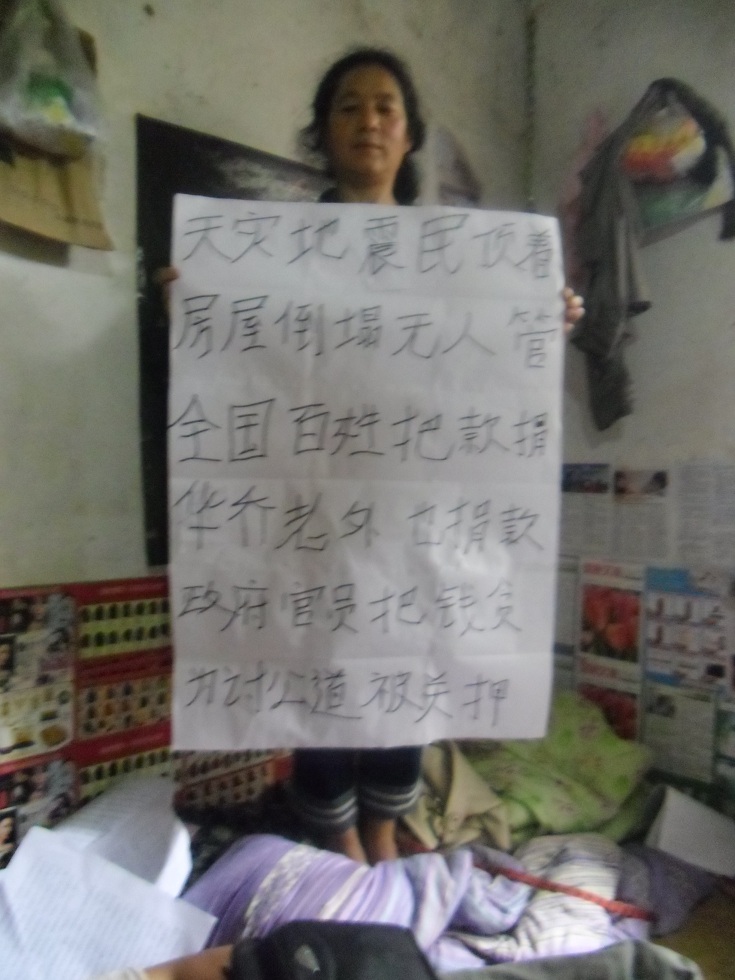 天灾地震民顶着
房屋倒塌无人管
全国百姓把款捐
华侨老外也捐款
政府官员把钱贪
为讨公道被关押